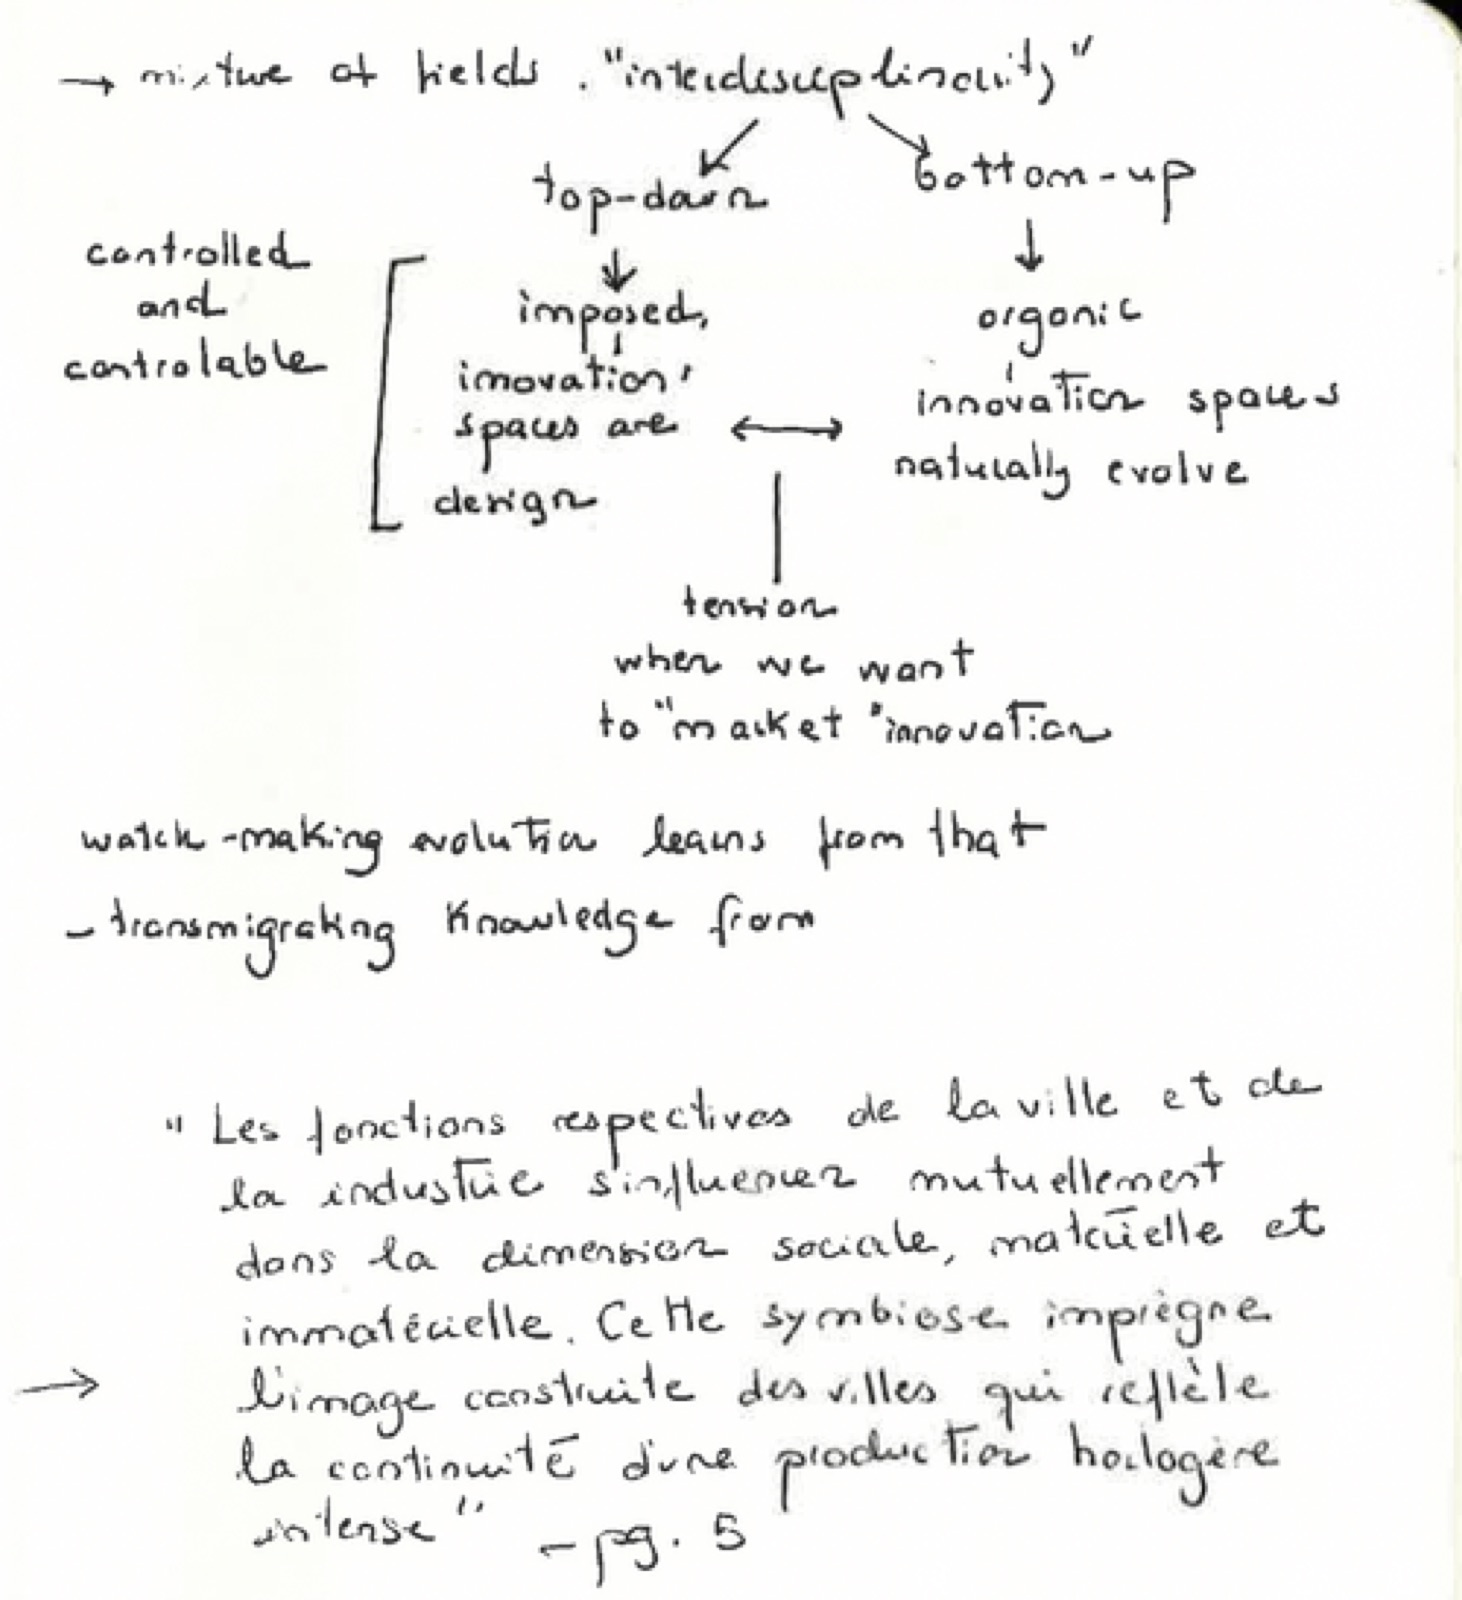 → mixture of fields. "interdisciplinarity"
top-down
bottom-up
controlled
and
controlable
↓
imposed,
innovation
spaces are
design
↓
organic
innovation spaces
naturally evolve
↔
tension
when we want
to "market" innovation
watch-making evolution learns from that
- transmigrating knowledge from
"Les fonctions respectives de la ville et de
la industrie s'influencer mutuellement
dans la dimension sociale, matérielle et
immatérielle. Cette symbiose imprègne
→ l'image construite des villes qui reflète
la continuité d'une production horlogère
intense" - pg. 5